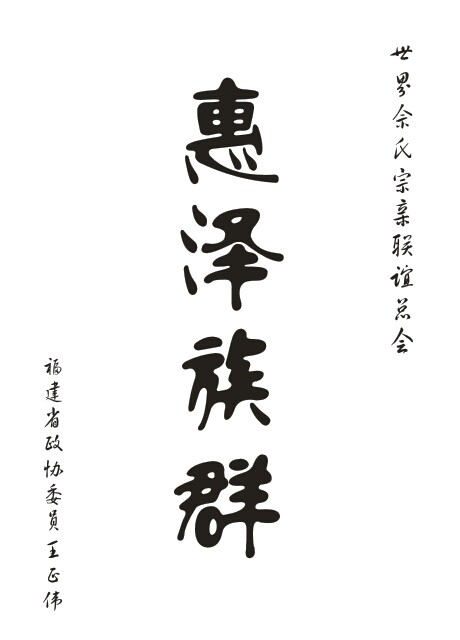 世界佘氏宗亲联谊总会
惠泽族群
福建省政协委员王正伟